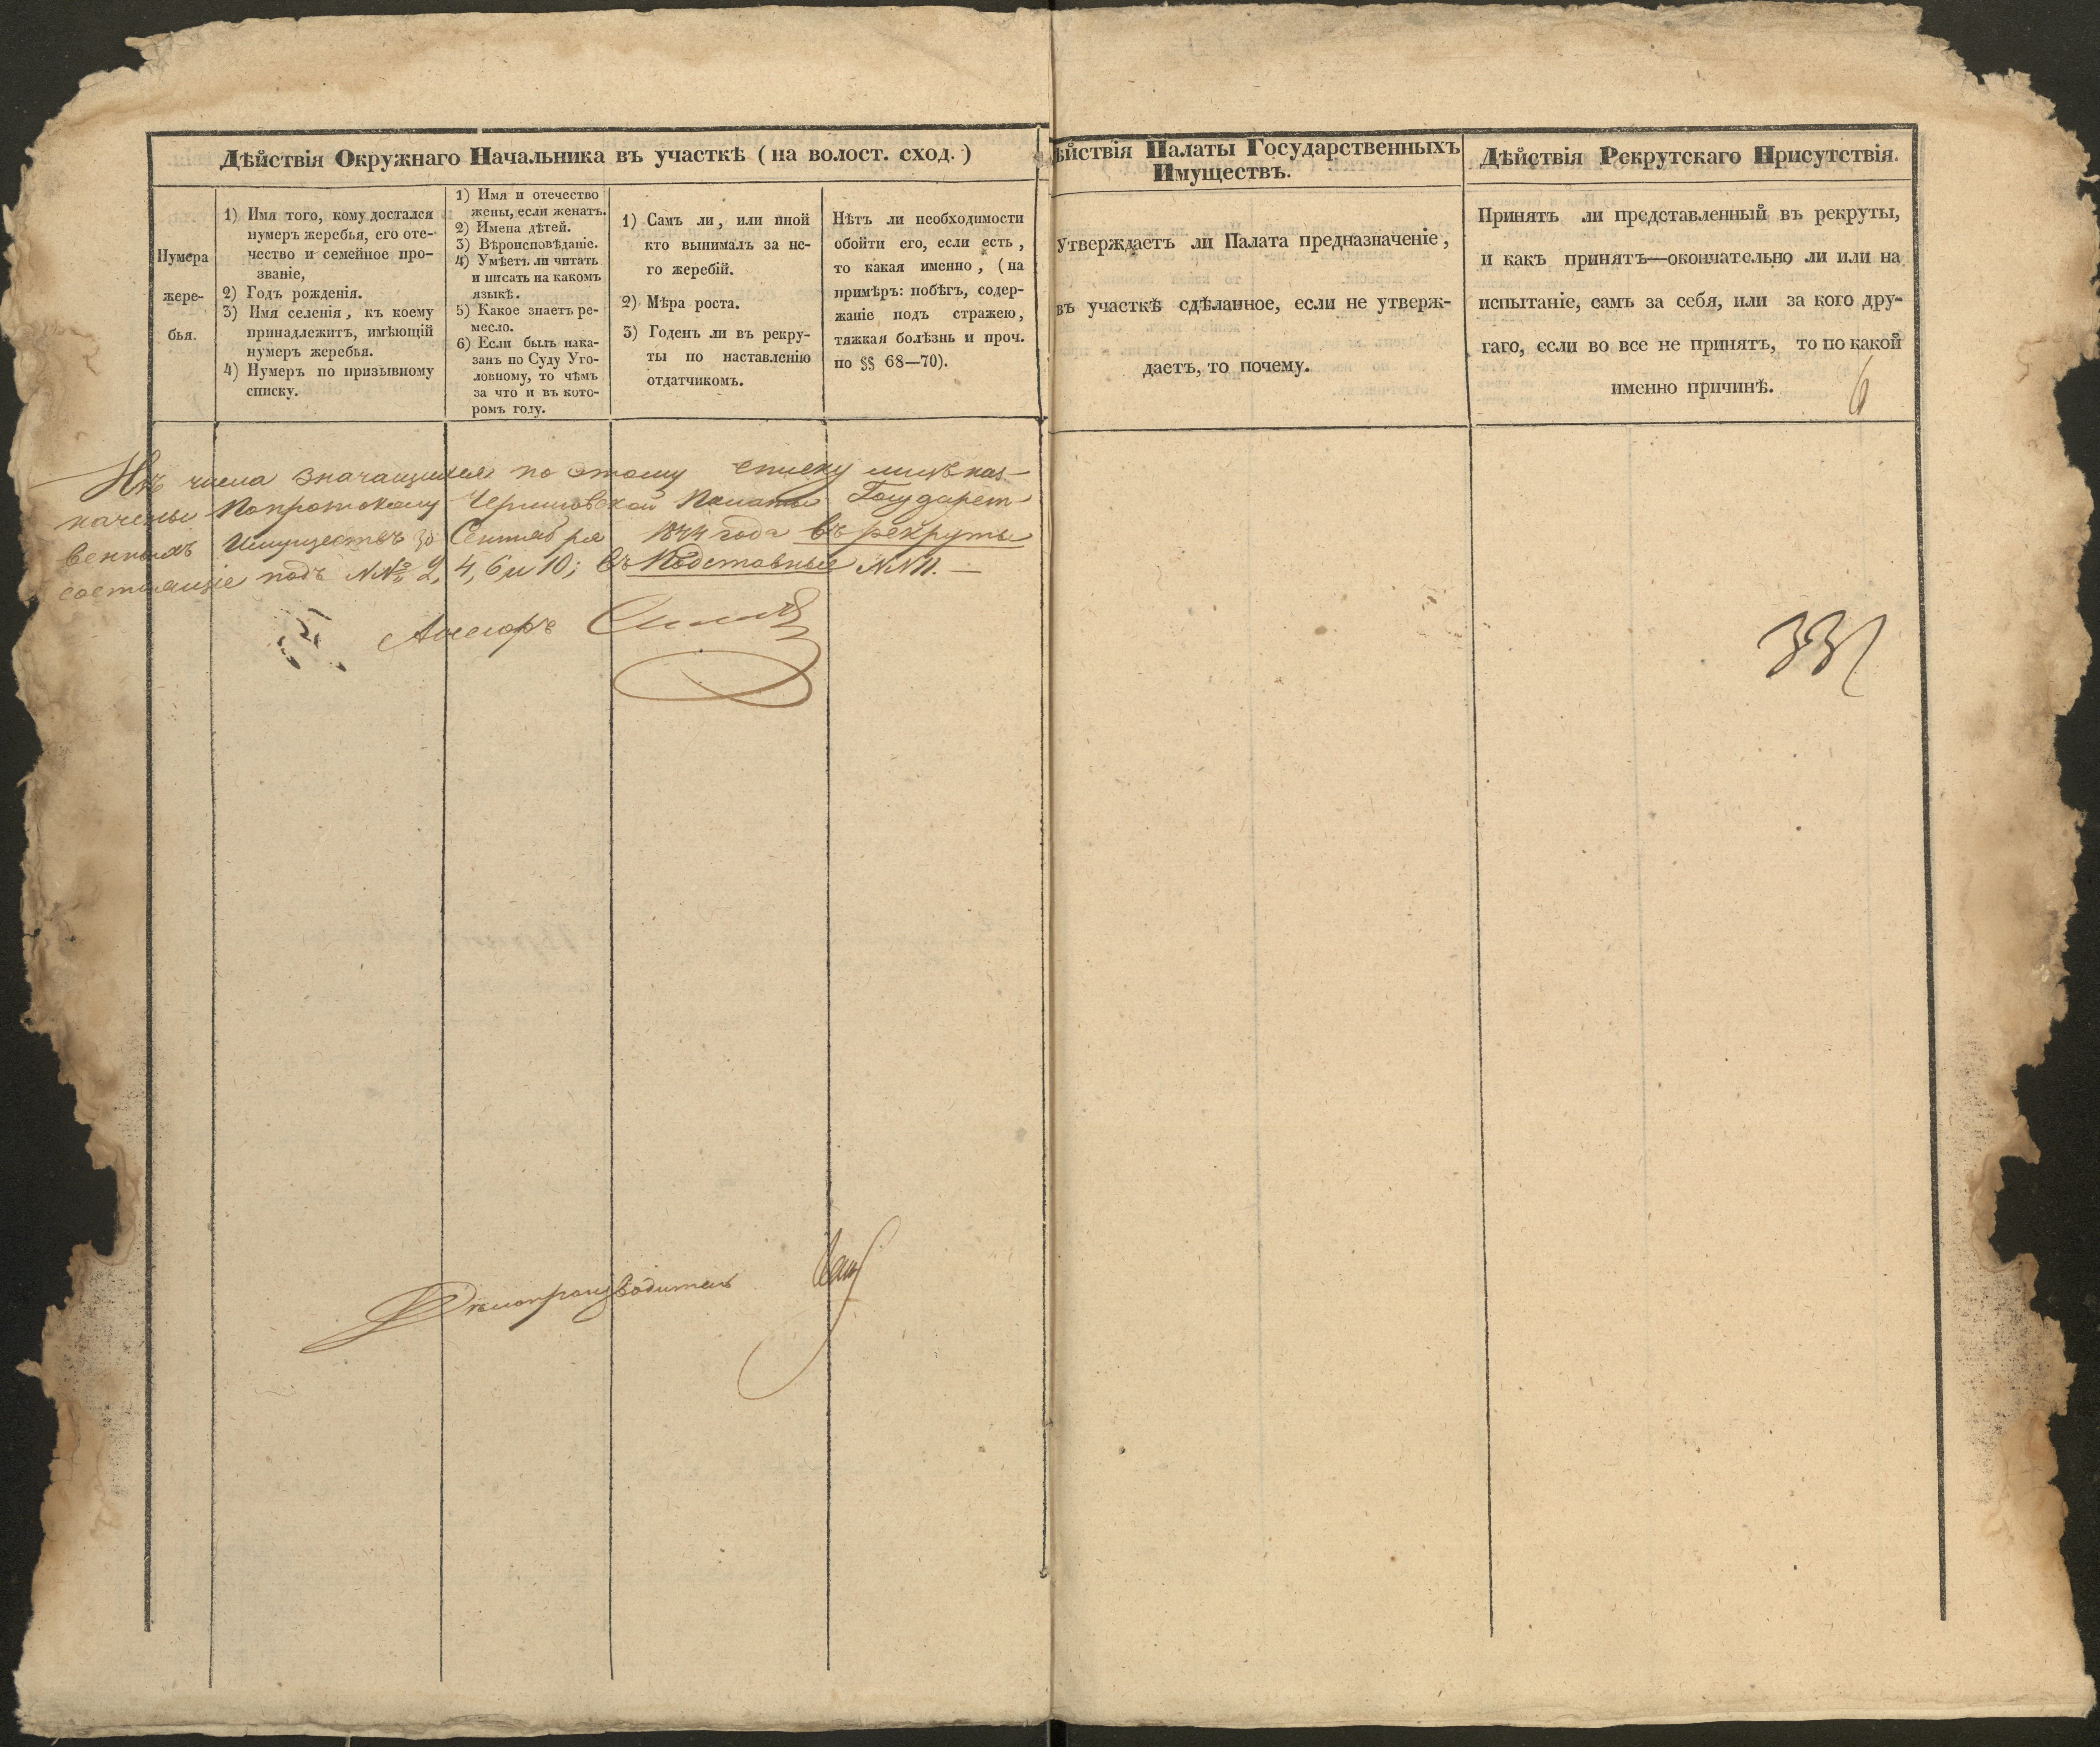 Дѣйствія Окружнаго Начальника въ участкѣ (на волост. сход.)
Нумера
жере-
бья.
1) Имя того, кому достался
нумеръ жеребья, его оте-
чество и семейное про-
званіе,
2) Годъ рожденія.
3) Имя селенія, къ коему
принадлежитъ, имѣющій
нумеръ жеребья.
4) Нумеръ по призывному
списку.
1) Имя и отечество
жены, если женатъ.
2) Имена дѣтей.
3) Вѣроисповѣданіе.
4) Умѣетъ ли читать
и писать на какомъ
языкѣ.
5) Какое знаетъ ре-
месло.
6) Если былъ нака-
занъ по Суду Уго-
ловному, то чѣмъ
за что и въ кото-
ромъ году.
1) Самъ ли, или иной
кто вынималъ за не-
го жеребій.
2) Мѣра роста.
3) Годенъ ли въ рекру-
ты по наставленію
отдатчикомъ.
Нѣтъ ли необходимости
обойти его, если есть,
то какая именно, (на
примѣръ: побѣгъ, содер-
жаніе подъ стражею,
тяжкая болѣзнь и проч.
по §§ 68—70).
Изъ числа значащихся по этому списку лицъ наз-
начены по протоколу Черниговской Палаты Государст-
венныхъ Имуществъ 30 Сентября 1844 года въ рекруты
состоящіе подъ №№ 2, 4, 6 и 10; въ Подставные №№ 11. —
Ассесоръ
Дѣлопроизводитель
ѣйствія Палаты Государственныхъ
Имуществъ.
Утверждаетъ ли Палата предназначеніе,
въ участкѣ сдѣланное, если не утверж-
даетъ, то почему.
Дѣйствія Рекрутскаго Присутствія.
Принятъ ли представленный въ рекруты,
и какъ принятъ—окончательно ли или на
испытаніе, самъ за себя, или за кого дру-
гаго, если во все не принятъ, то по какой
именно причинѣ.
6